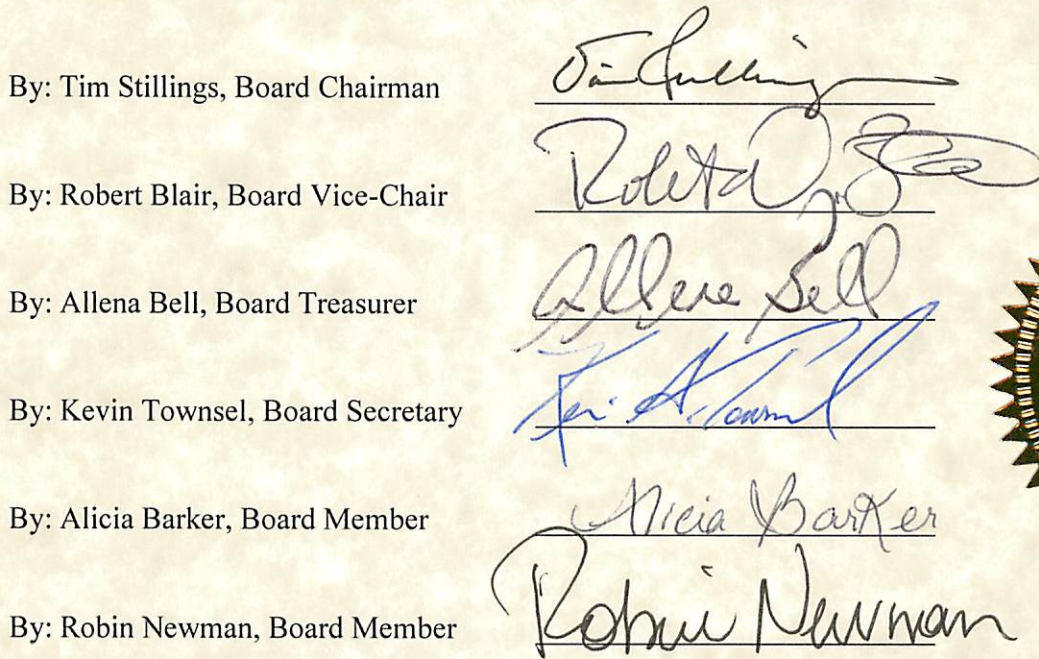 By: Tim Stillings, Board Chairman Tim Stillings
By: Robert Blair, Board Vice-Chair Robert
By: Allena Bell, Board Treasurer Allena Bell
By: Kevin Townsel, Board Secretary Kevin A. Townsel
By: Alicia Barker, Board Member Alicia Barker
By: Robin Newman, Board Member Robin Newman